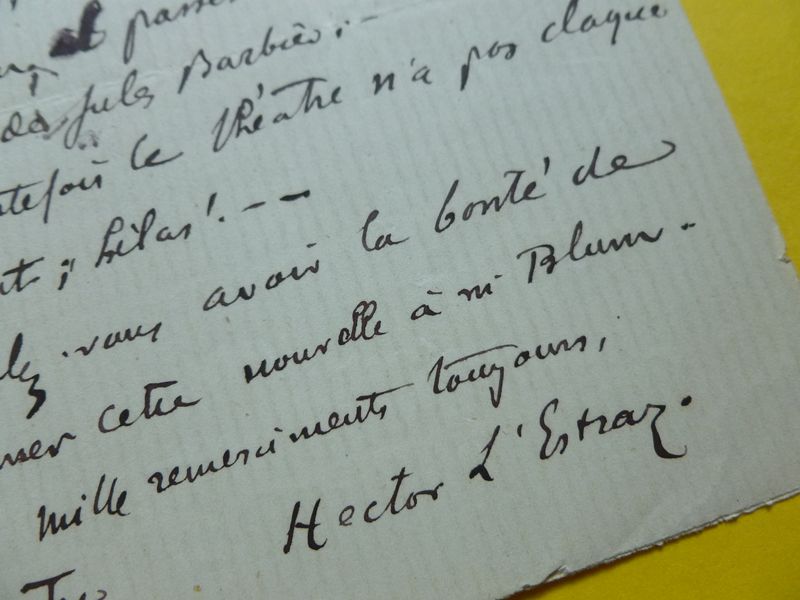 passer
de Jules Barbier; -
le théâtre n'a pas claqué
; hélas! - -
vous avoir la bonté de
cette nouvelle à m Blum -
mille remerciments toujours,
Hector L'Estraz.